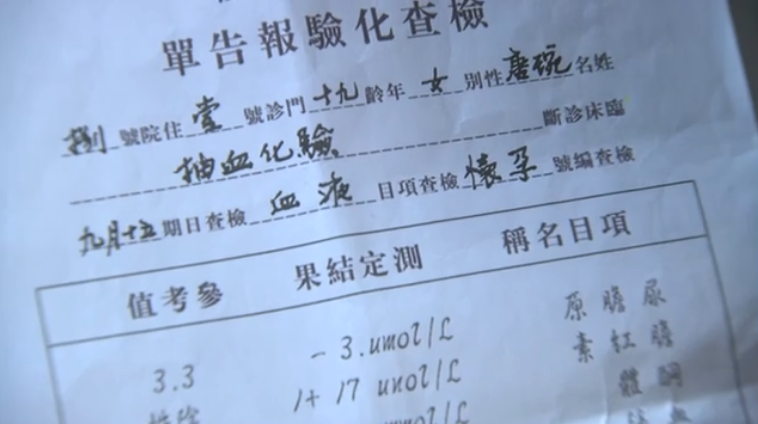 檢查化驗報告單
姓名 唐琬 性別 女 年齡 十九 門診號 壹 住院號 捌
臨床診斷 抽血化驗
檢查編號 懷孕 檢查項目 血液 檢查日期 九月十五
項目名稱 測定結果 參考值
尿膽原 - 3.umol/L 3.3
膽紅素 1+ 17 unol/L
酮體 mol/L